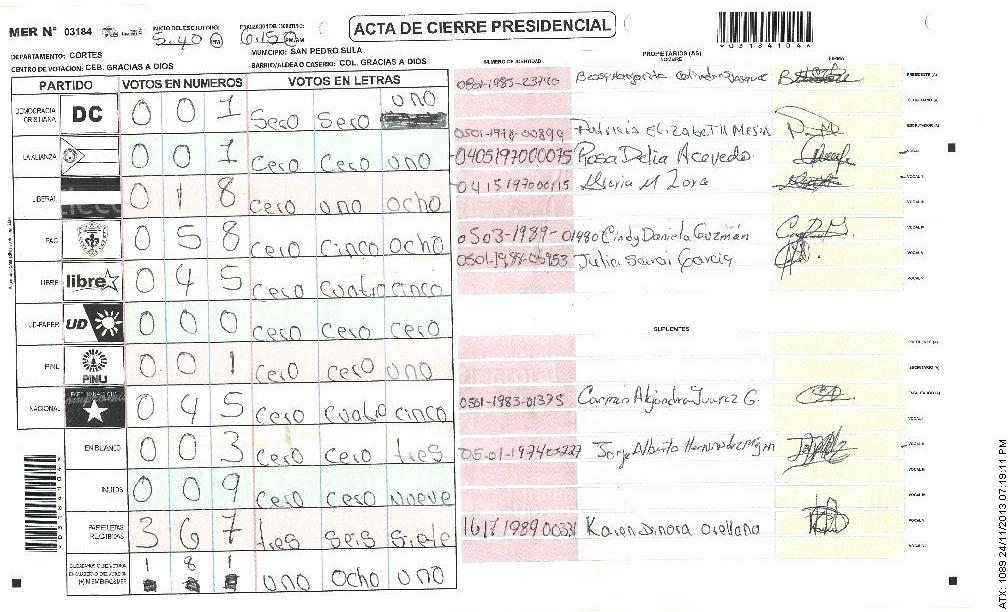 MER N° 03184 INICIO DEL ESCRUTINIO: 5:40 PM FINALIZACION DEL ESCRUTINIO: 6:15 PM
ACTA DE CIERRE PRESIDENCIAL
*03184104*
DEPARTAMENTO: CORTES MUNICIPIO: SAN PEDRO SULA
CENTRO DE VOTACION: CEB. GRACIAS A DIOS BARRIO/ALDEA O CASERIO: COL. GRACIAS A DIOS
PARTIDO VOTOS EN NUMEROS VOTOS EN LETRAS
DEMOCRACIA CRISTIANA DC 0 0 1 Sero Sero uno
LA ALIANZA 0 0 1 Cero Cero uno
LIBERAL 0 1 8 Cero uno ocho
PAC 0 5 8 Cero Cinco ocho
LIBRE libre 0 4 5 Cero Cuatro cinco
UD-FAPER UD 0 0 0 Cero Cero Cero
PINU PINU 0 0 1 Cero Cero uno
NACIONAL 0 4 5 Cero Cuatro cinco
EN BLANCO 0 0 3 Cero Cero tres
NULOS 0 0 9 Cero Cero nueve
PAPELETAS RECIBIDAS 3 6 7 tres Seis Siete
1 8 1 uno ocho uno
NUMERO DE IDENTIDAD PROPIETARIOS (AS) NOMBRE FIRMA
0801-1985-23740 PRESIDENTE (A)
SECRETARIO (A)
0501-1978-00899 Patricia Elizabeth Mesa ESCRUTADOR (A)
0405197000075 Rosa Delia Acevedo VOCAL I
0415197000115 Maria M Lora VOCAL II
VOCAL III
0503-1989-01480 Cindy Daniela Guzmán VOCAL IV
0501-1988-06953 Julia Sarai Garcia VOCAL V
SUPLENTES
PRESIDENTE (A)
SECRETARIO (A)
0501-1983-01375 Carmen Alejandra Juarez G. ESCRUTADOR (A)
VOCAL I
Jorge Alberto Hernandez VOCAL II
VOCAL III
VOCAL IV
1617198900331 Karen Dinora Orellana VOCAL V
VOCAL VI
ATX: 1089 24/11/2013 07:19:11 PM